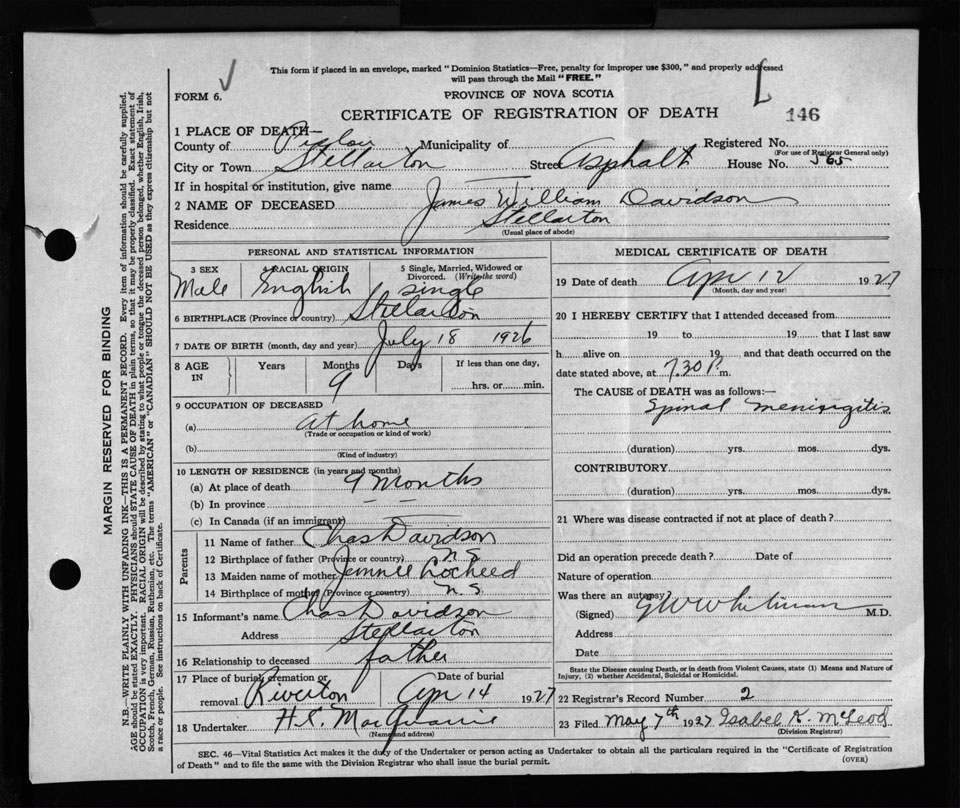 This form if placed in an envelope, marked "Dominion Statistics—Free, penalty for improper use $300," and properly addressed
will pass through the Mail "FREE."
FORM 6.
PROVINCE OF NOVA SCOTIA
CERTIFICATE OF REGISTRATION OF DEATH
146
1 PLACE OF DEATH—
County of Pictou Municipality of Registered No.
(For use of Registrar General only)
City or Town Stellarton Street Asphalt House No. 565
If in hospital or institution, give name
2 NAME OF DECEASED James William Davidson
Residence Stellarton
(Usual place of abode)
PERSONAL AND STATISTICAL INFORMATION
3 SEX
Male
4 RACIAL ORIGIN
English
5 Single, Married, Widowed or
Divorced. (Write the word)
single
6 BIRTHPLACE (Province or country) Stellarton
7 DATE OF BIRTH (month, day and year) July 18 1926
8 AGE IN
Years Months Days If less than one day,
9 hrs. or min.
9 OCCUPATION OF DECEASED
(a) at home
(Trade or occupation or kind of work)
(b)
(Kind of industry)
10 LENGTH OF RESIDENCE (in years and months)
(a) At place of death 9 Months
(b) In province — —
(c) In Canada (if an immigrant)
Parents
11 Name of father Chas Davidson
12 Birthplace of father (Province or country) N.S.
13 Maiden name of mother Jennie Locheed
14 Birthplace of mother (Province or country) N.S.
15 Informant's name Chas Davidson
Address Stellarton
16 Relationship to deceased father
17 Place of burial, cremation or removal Riverton
Date of burial
Apr 14 1927
18 Undertaker H.S. MacQuarrie
(Name and address)
MEDICAL CERTIFICATE OF DEATH
19 Date of death Apr 12 1927
(Month, day and year)
20 I HEREBY CERTIFY that I attended deceased from
19 to 19 that I last saw
h alive on 19 and that death occurred on the
date stated above, at 7.30 P. m.
The CAUSE of DEATH was as follows:—
Spinal meningitis
(duration) yrs. mos. dys.
CONTRIBUTORY
(duration) yrs. mos. dys.
21 Where was disease contracted if not at place of death?
Did an operation precede death? Date of
Nature of operation
Was there an autopsy?
(Signed) G W Whitman M.D.
Address
Date
State the Disease causing Death, or in death from Violent Causes, state (1) Means and Nature of
Injury, (2) whether Accidental, Suicidal or Homicidal.
22 Registrar's Record Number 2
23 Filed May 7th 1927 Isabel K. McLeod
(Division Registrar)
SEC. 46—Vital Statistics Act makes it the duty of the Undertaker or person acting as Undertaker to obtain all the particulars required in the "Certificate of Registration
of Death" and to file the same with the Division Registrar who shall issue the burial permit.
(OVER)
MARGIN RESERVED FOR BINDING
N.B.—WRITE PLAINLY WITH UNFADING INK—THIS IS A PERMANENT RECORD. Every item of information should be carefully supplied.
AGE should be stated EXACTLY. PHYSICIANS should STATE CAUSE OF DEATH in plain terms, so that it may be properly classified. Exact statement of
OCCUPATION is very important. RACIAL ORIGIN will be described by stating to what people or tongue the deceased person belonged, whether English, Irish,
Scotch, French, German, Russian, Ruthenian, etc. The terms "AMERICAN" or "CANADIAN" SHOULD NOT BE USED as they express citizenship but not
a race or people. See instructions on back of Certificate.